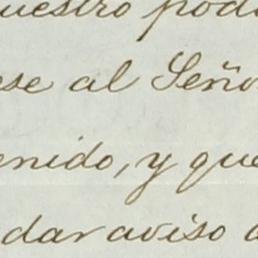 uestro pod
ese al Seño
enido, y que
dar aviso a